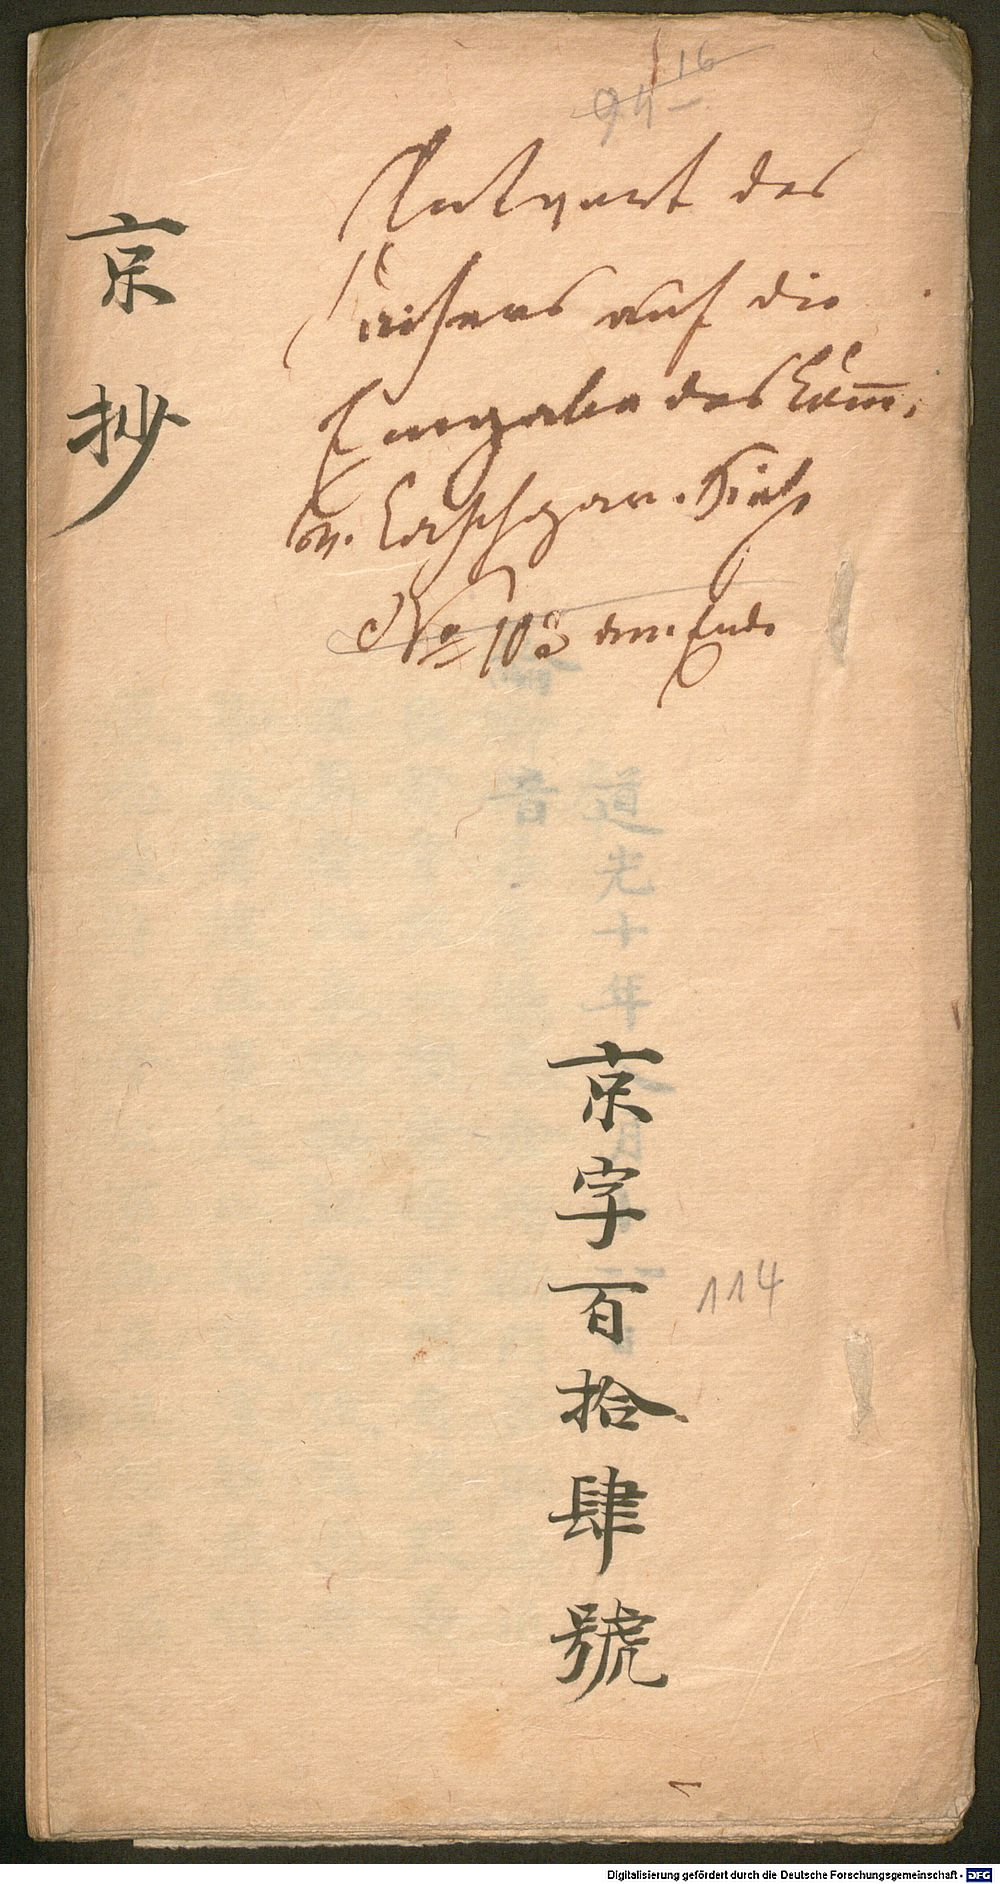 16
94
Antwort des
Kaisers auf die
Eingabe des Comm.
v. Caschgar. Siehe
No 103 am Ende
京抄
道光十年
京字百拾肆號
114
Digitalisierung gefördert durch die Deutsche Forschungsgemeinschaft - DFG